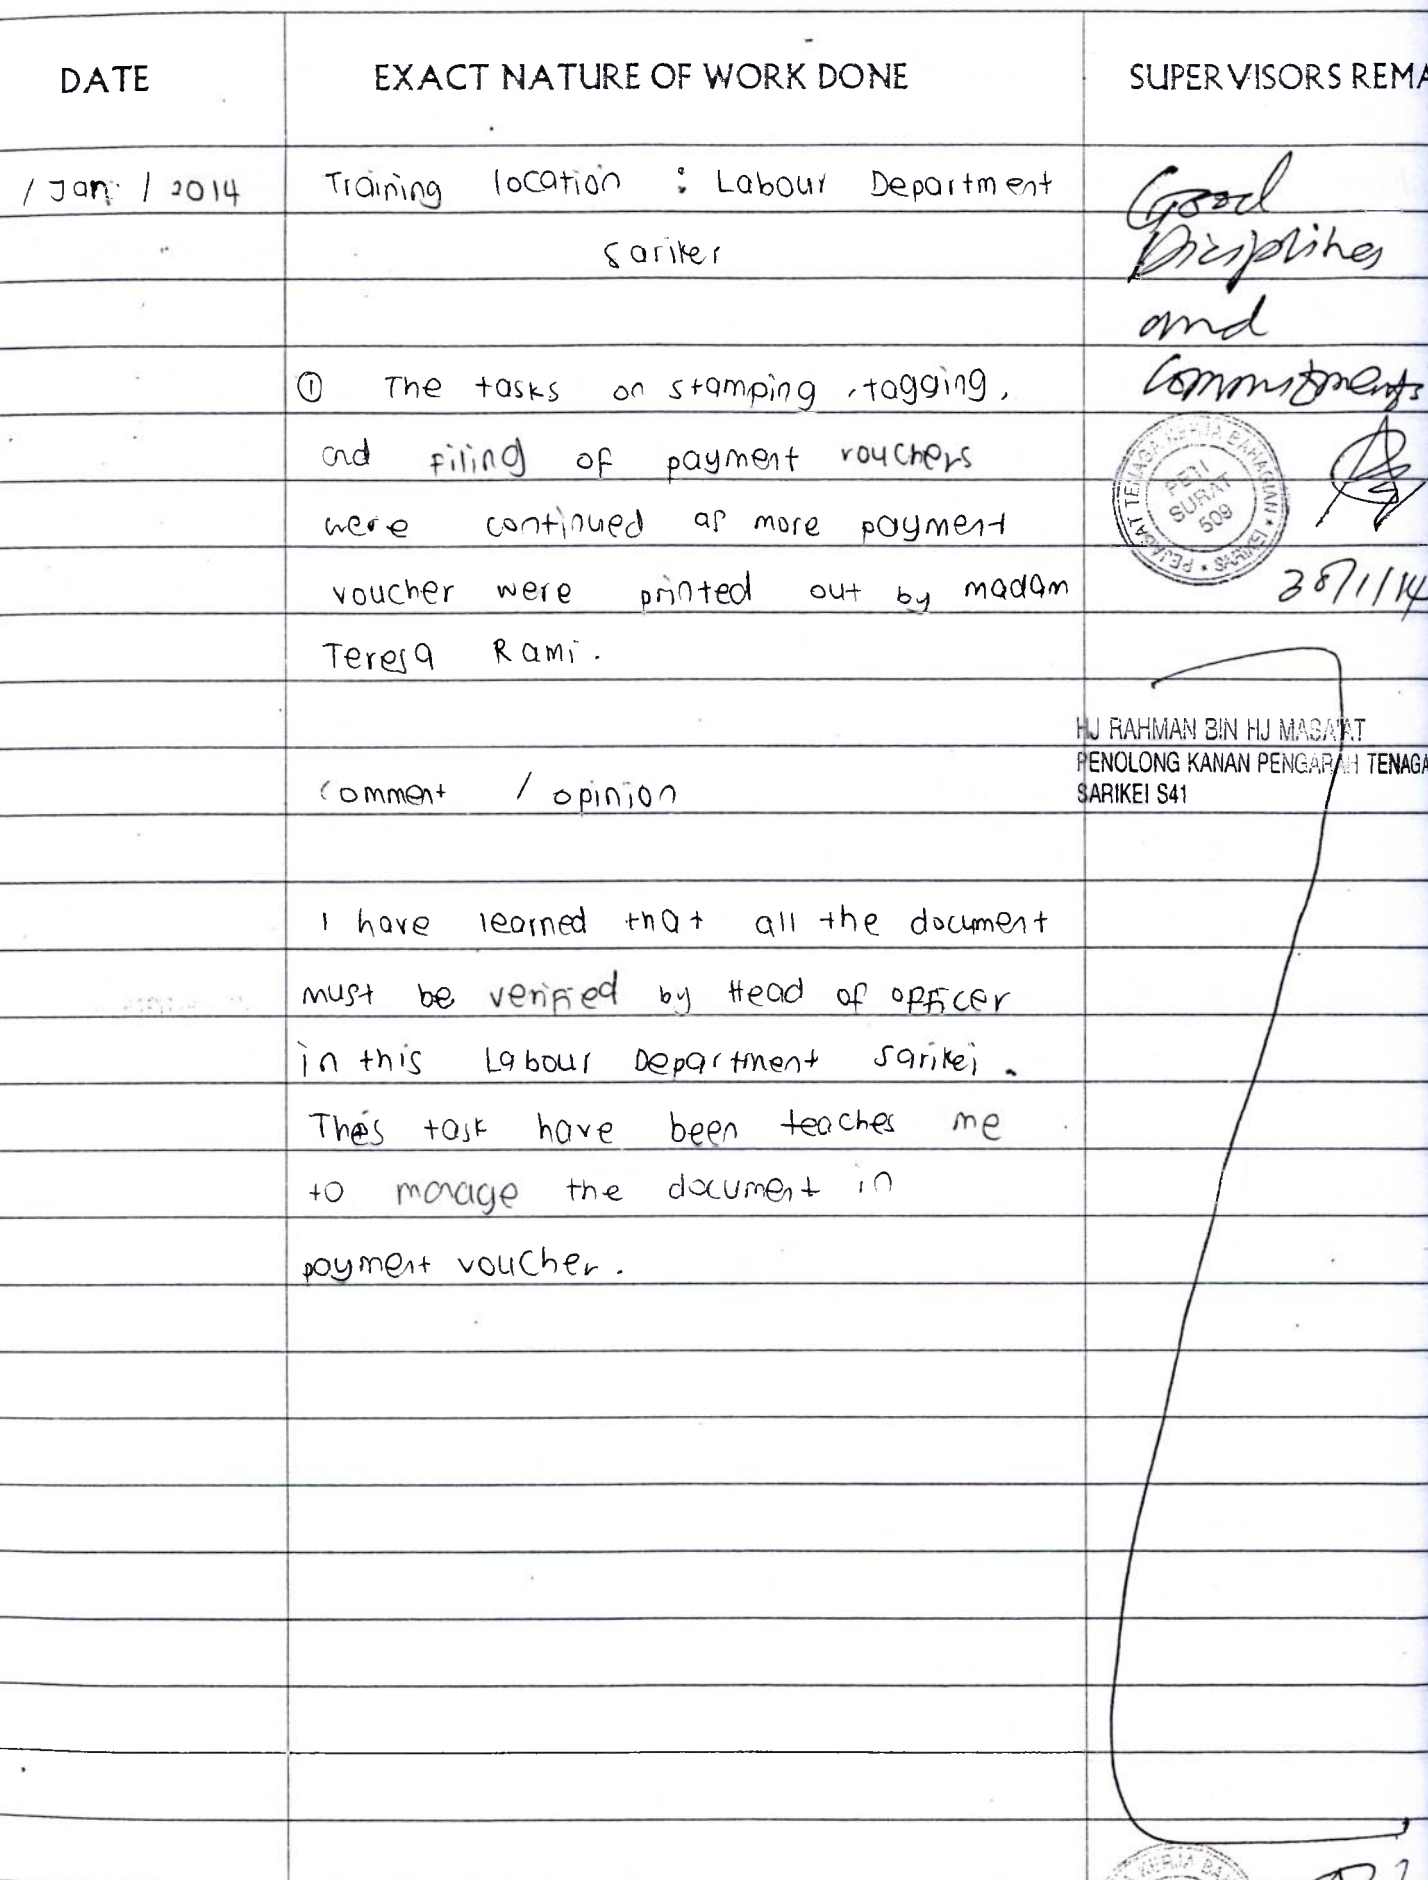 DATE
EXACT NATURE OF WORK DONE
SUPERVISORS REMA
/ Jan / 2014
Training location : Labour Department
Sarikei
① The tasks on stamping, tagging,
and filing of payment vouchers
were continued as more payment
voucher were printed out by madam
Teresa Rami.
Comment / opinion
I have learned that all the document
must be verified by Head of officer
in this Labour Department Sarikei.
Thes task have been teaches me
to manage the document in
payment voucher.
Good
Diciplines
and
Commitments
PEJABAT TENAGA KERJA BAHAGIAN * SARIKEI *
PETI
SURAT
509
28/1/14
HJ RAHMAN BIN HJ MASA'AT
PENOLONG KANAN PENGARAH TENAGA
SARIKEI S41
KERJA BA